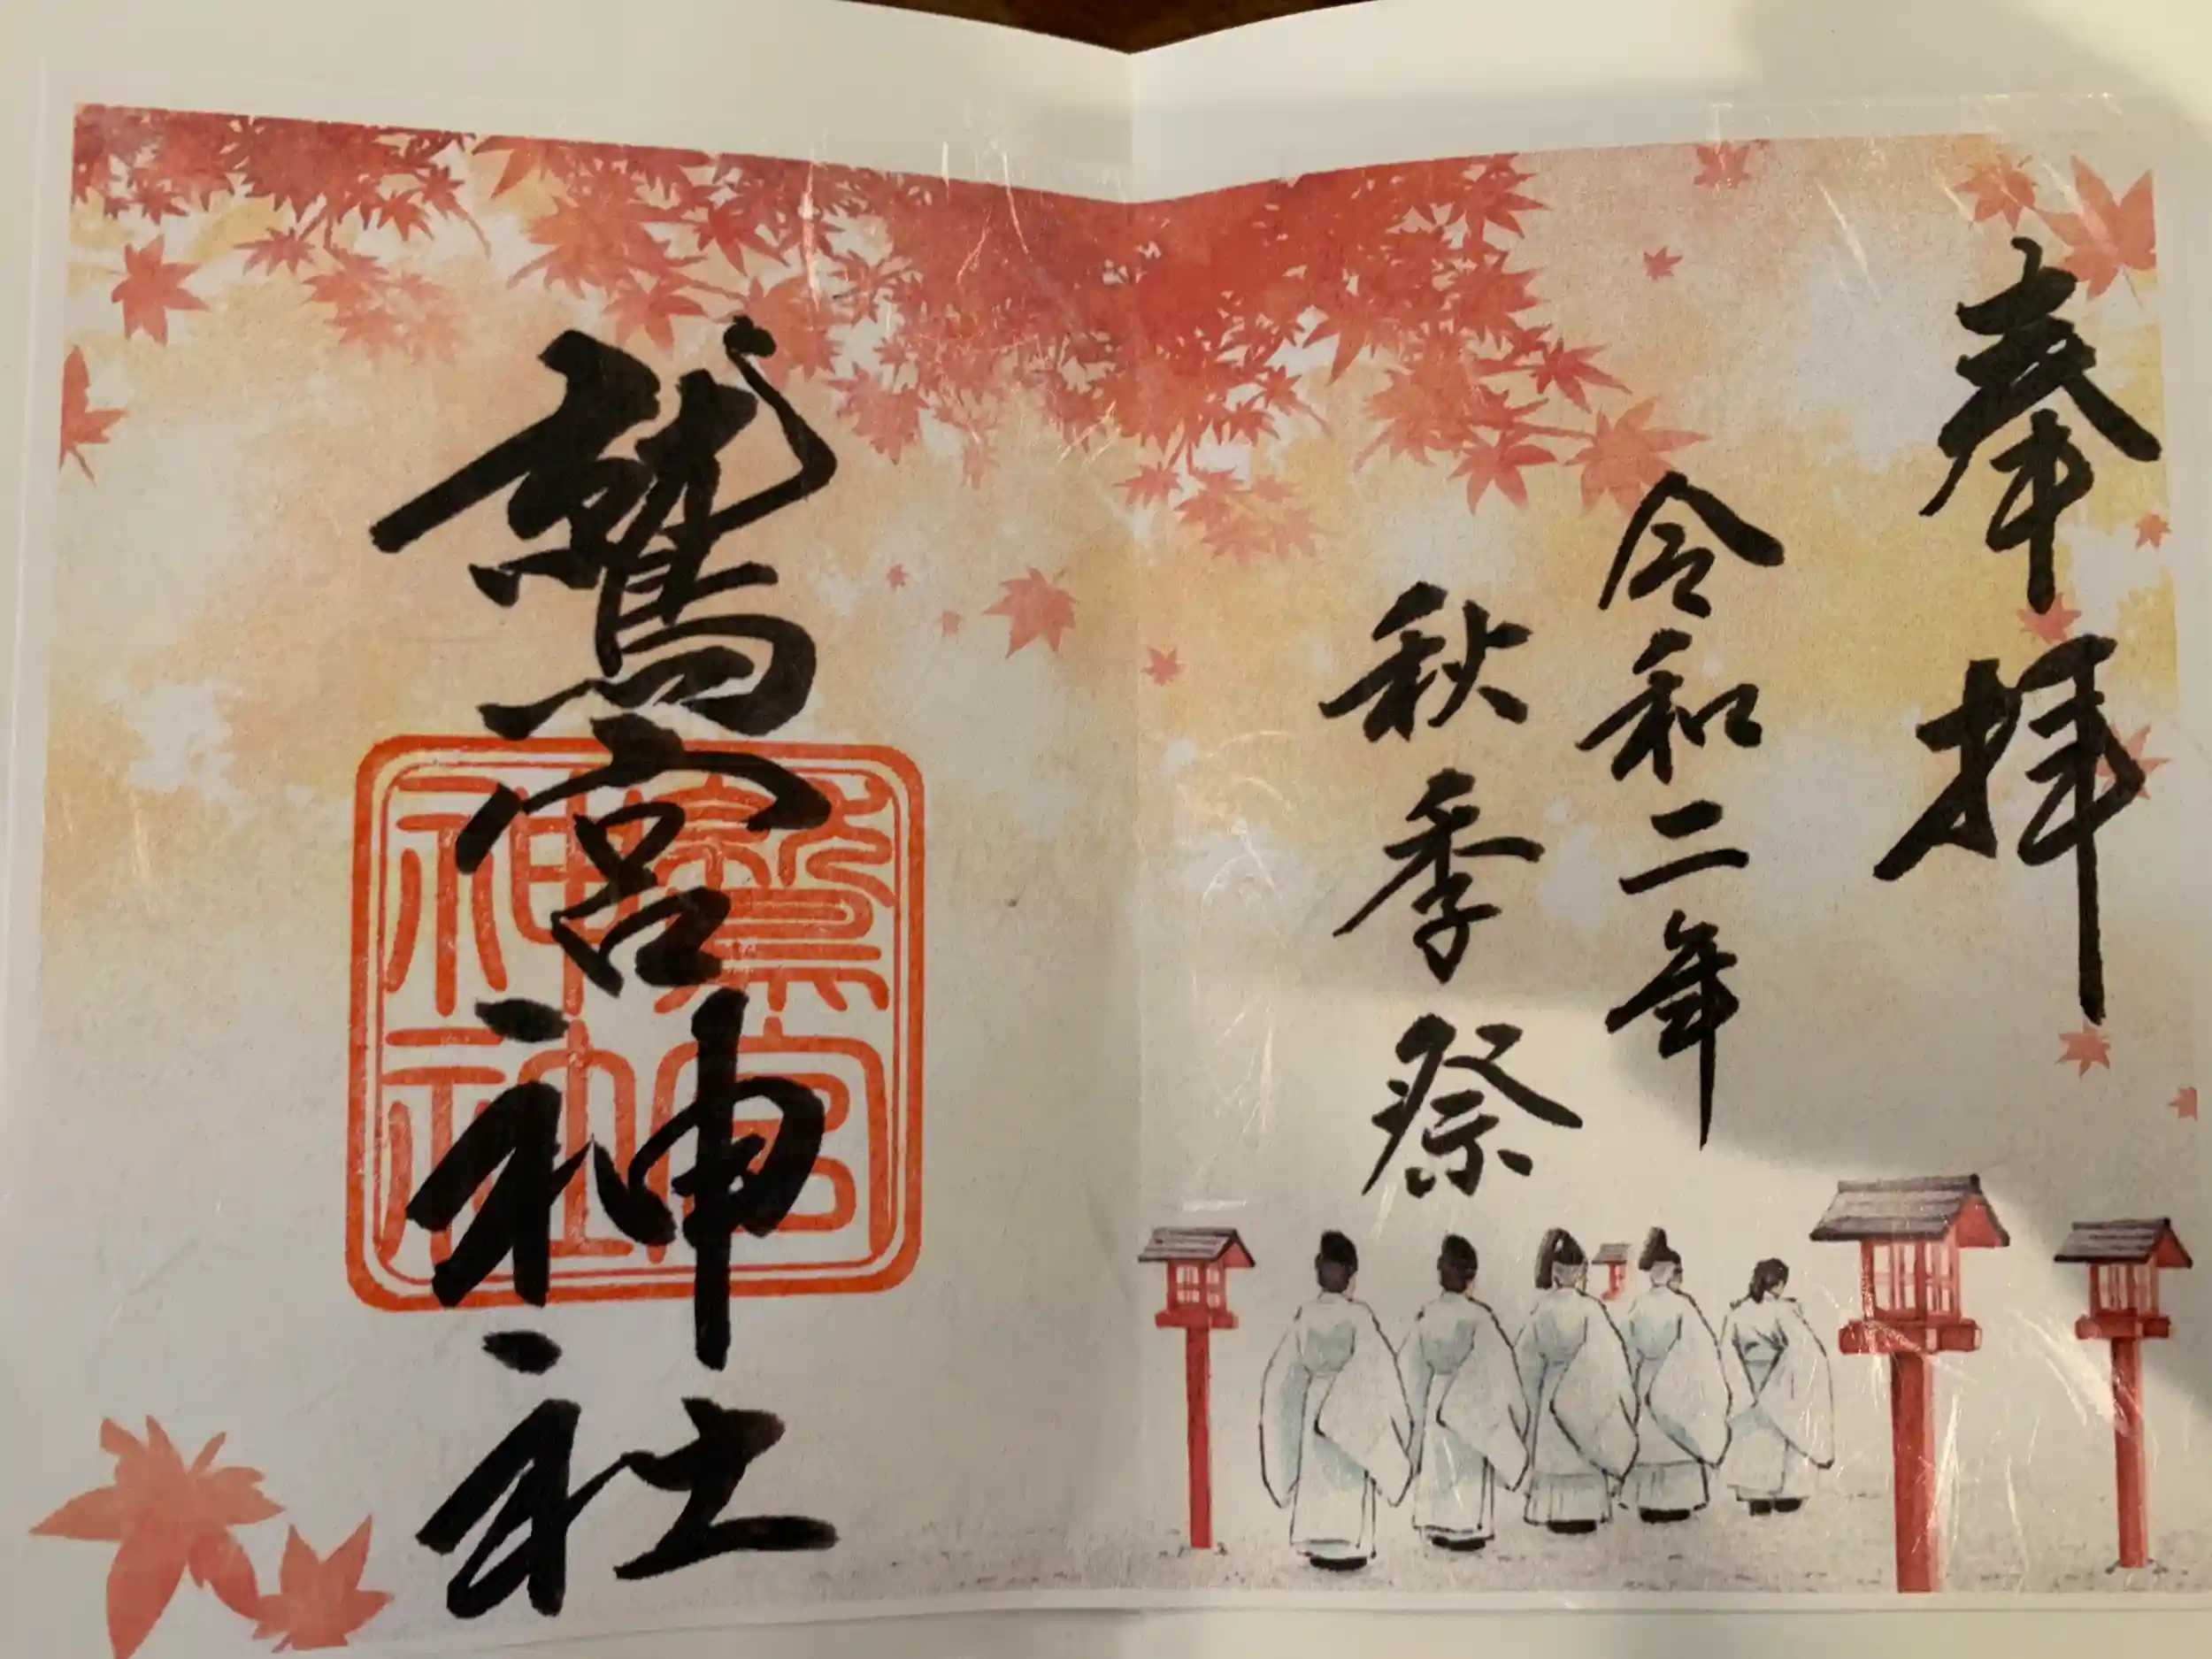 奉拝
令和二年
秋季祭
鷲宮神社
鷲宮
神社